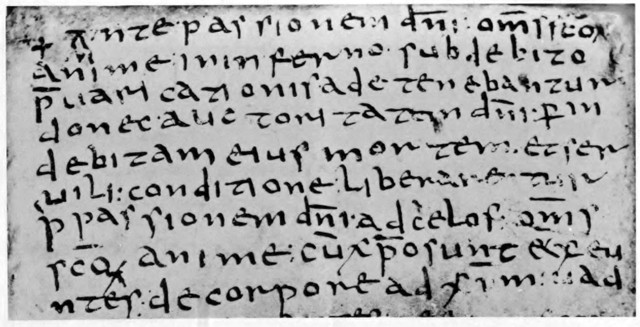 + Ante passionem dn̄i· om̄s sc̄oꝝ
anime in inferno· sub debito
p̄uaricationis ade tenebantur
donec auctoritatem dn̄i· ꝑ in
debitam eius mortem· et ser
uili· conditione· liberarentur
p̄ passionem dn̄i· ad celos· om̄s
sc̄oꝝ anime· cū xp̄o sunt et exeu
ntes· de corpore ad xp̄m· uad